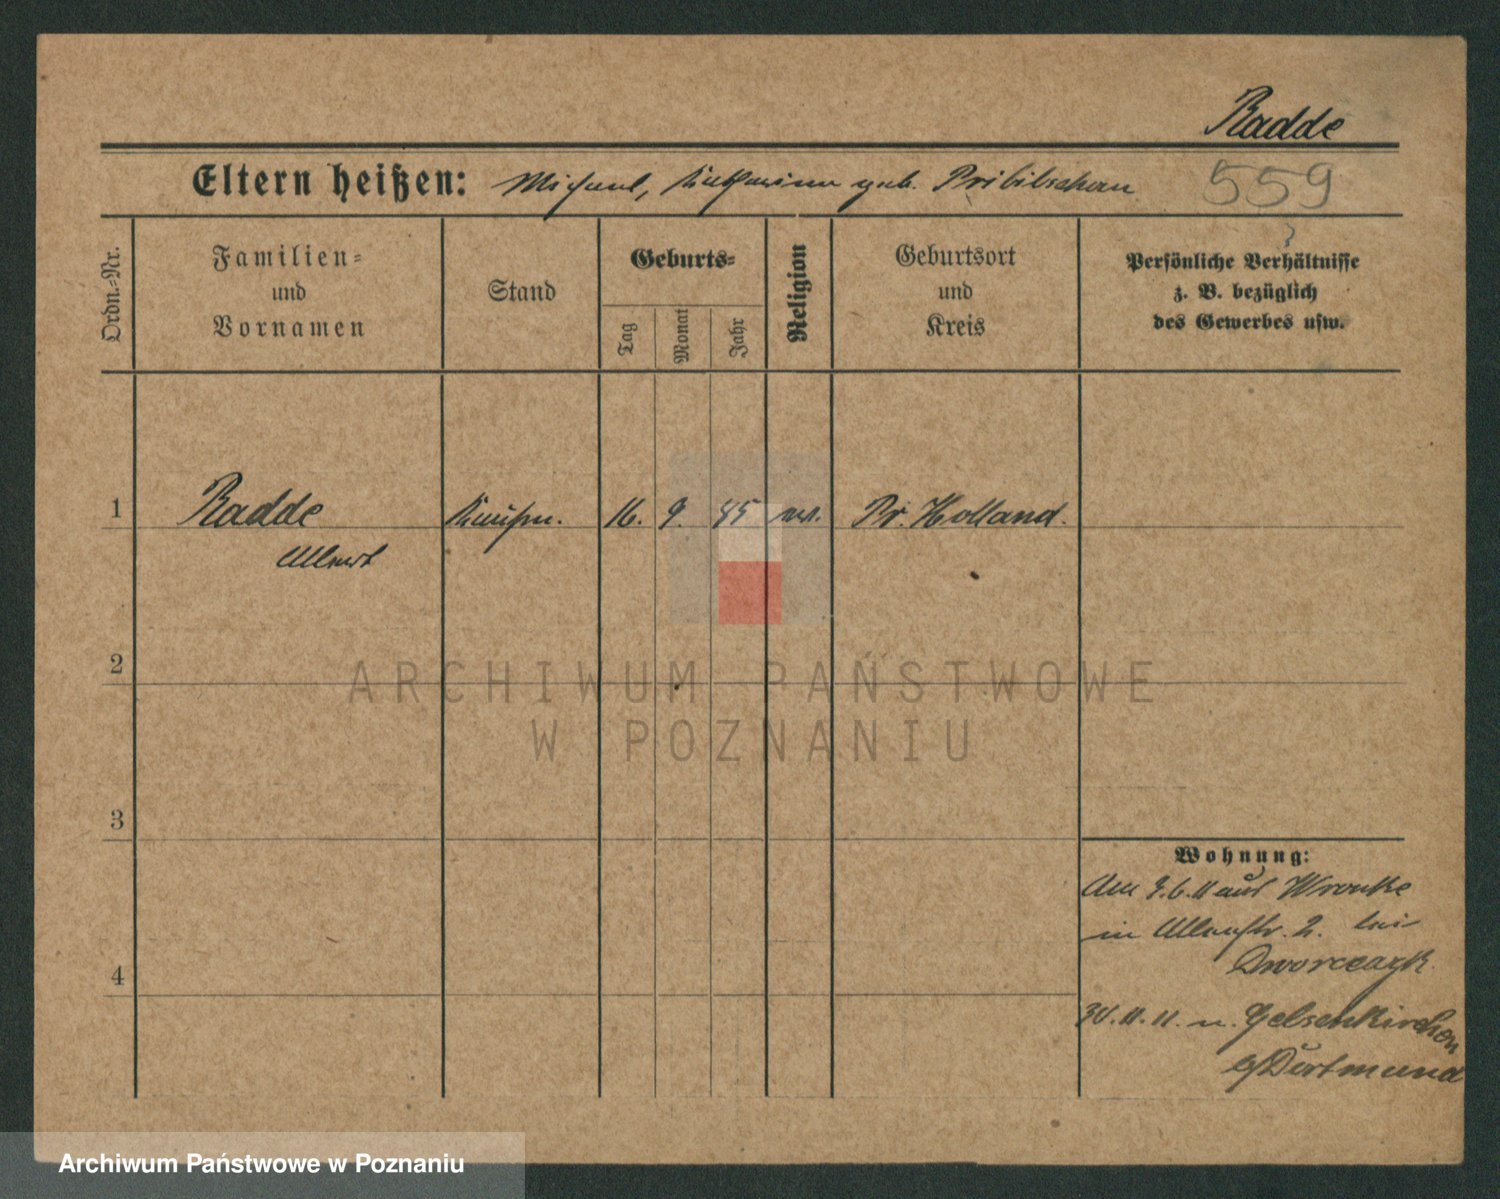 Radde
Eltern heißen: Michael, Katharina geb. Pribilschau
559
Ordn.-Nr.
Familien-
und
Vornamen
Stand
Geburts-
Tag
Monat
Jahr
Religion
Geburtsort
und
Kreis
Persönliche Verhältnisse
z. B. bezüglich
des Gewerbes usw.
1 Radde Kaufm. 16. 9. 85 Pr. Holland.
Albert
2
3
4
Wohnung:
Am 11 aus Wronke
in 2. bei
Dworczazk.
11. 11. n. Gelsenkirchen
b/Dortmund
ARCHIWUM PAŃSTWOWE
W POZNANIU
Archiwum Państwowe w Poznaniu